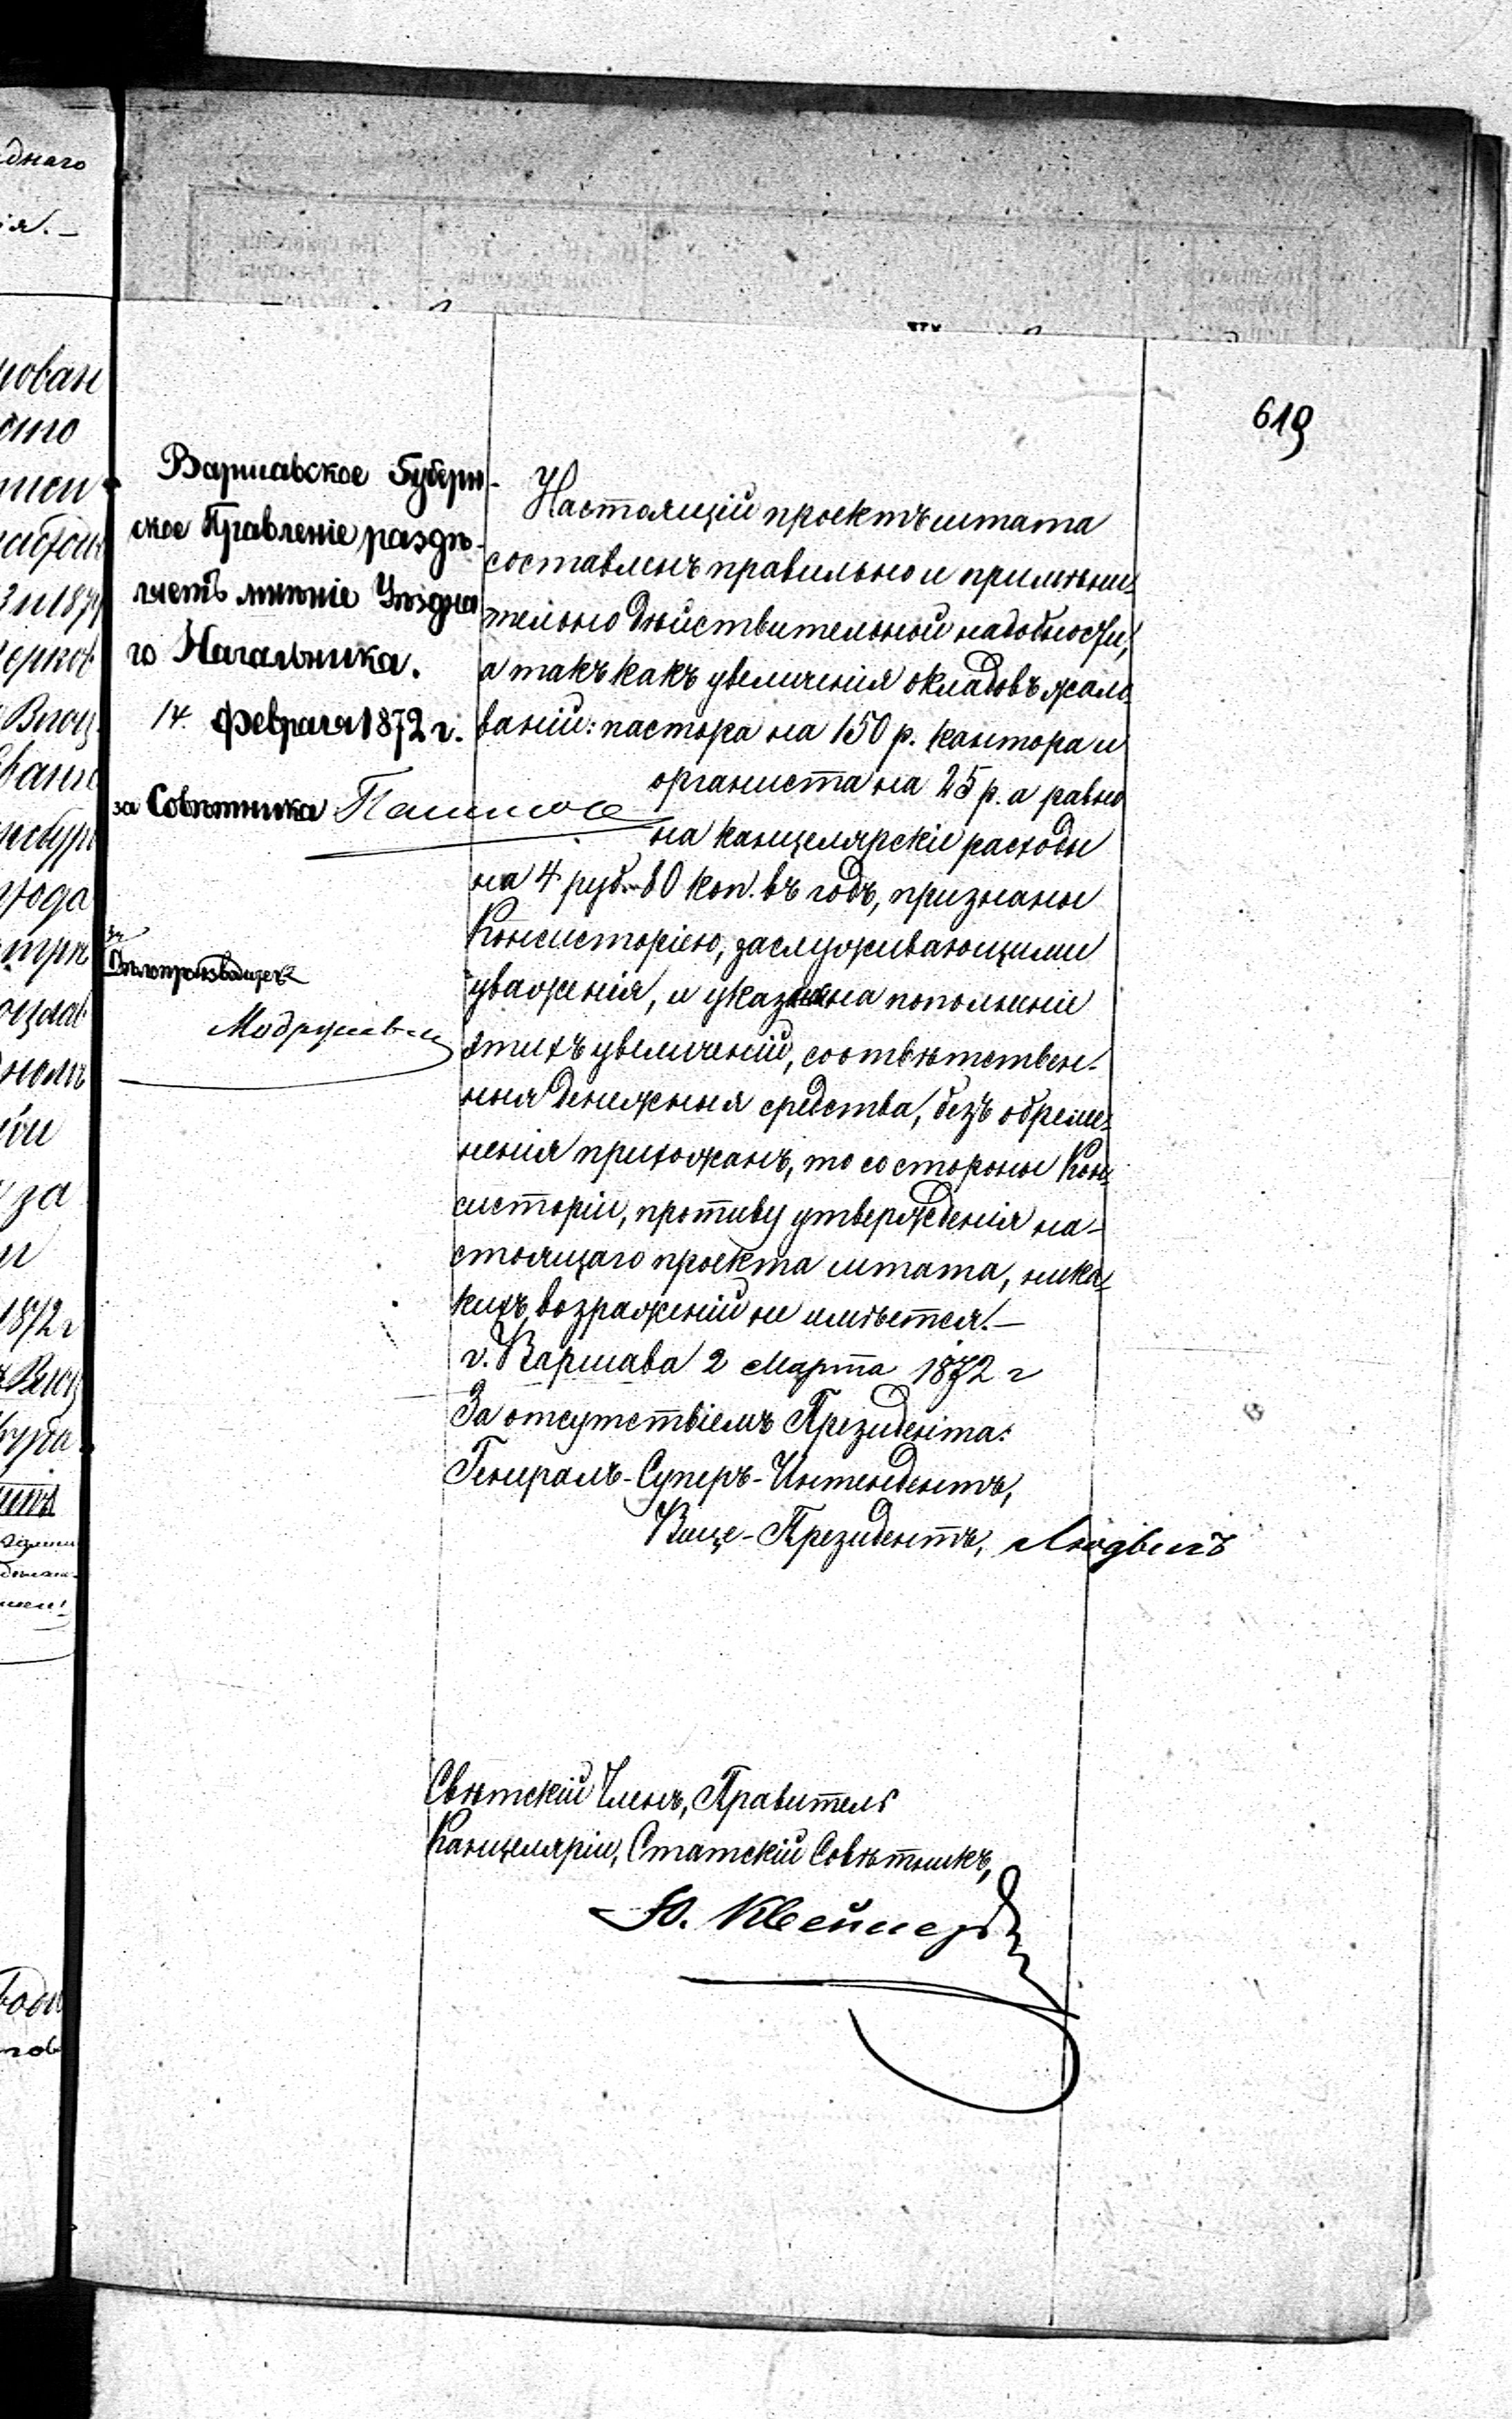 619
Варшавское Губерн-
ское Правленіе раздѣ-
ляетъ мнѣніе Уѣздна
го Начальника.
14 Февраля 1872 г.
за Совѣтника
за
Дѣлопроизводитель
Настоящій проектъ штата
составленъ правильно и примѣни-
тельно дѣйствительной надобности,
а такъ какъ увеличенія окладовъ жало-
ваній: пастора на 150 р. кантора и
органиста на 25 р. а равно
на канцелярскіе расходы
на 4 руб. 80 коп. въ годъ, признаны
Консисторіею, заслуживающими
уваженія, и указаны на пополненіе
этихъ увеличеній, соотвѣтствен-
ныя денежныя средства, безъ обреме-
ненія прихожанъ, то со стороны Кон-
систоріи, противу утвержденія на-
стоящаго проекта штата, ника-
кихъ возраженій не имѣется.—
г. Варшава 2 Марта 1872 г
За отсутствіемъ Президента:
Генералъ-Суперъ-Интендентъ,
Вице-Президентъ, Людвигъ
Свѣтскій Членъ, Правитель
Канцеляріи, Статскій Совѣтникъ,
Ю.